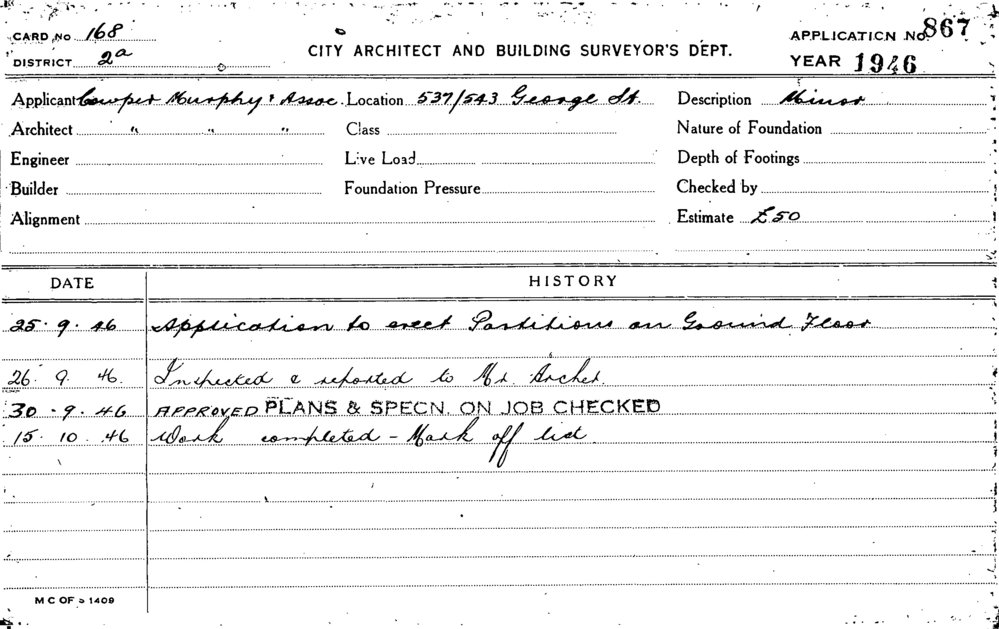 CARD No 168 APPLICATION No 867
CITY ARCHITECT AND BUILDING SURVEYOR'S DEPT.
DISTRICT 2a YEAR 1946
Applicant Cowper Murphy & Assoc. Location 537/543 George St. Description Minor
Architect " " " Class Nature of Foundation
Engineer Live Load Depth of Footings
Builder Foundation Pressure Checked by
Alignment Estimate £50
DATE HISTORY
25.9.46 Application to erect Partitions on Ground Floor
26.9.46. Inspected & reported to Mr. Archer.
30.9.46 APPROVED PLANS & SPECN. ON JOB CHECKED
15.10.46 Work completed - Mark off list.
M C OF S 1409